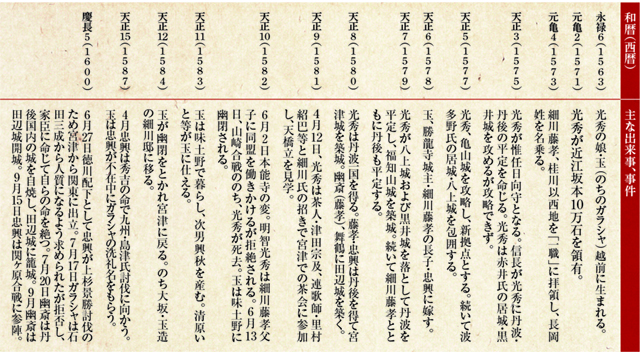 和暦(西暦)
主な出来事、事件
永禄6(1563)
光秀の娘・玉(のちのガラシャ)越前に生まれる。
元亀2(1571)
光秀が近江坂本10万石を領有。
元亀4(1573)
細川藤孝、桂川以西地を「一職」に拝領し、長岡
姓を名乗る。
天正3(1575)
光秀が惟任日向守となる。信長が光秀に丹波・
丹後の平定を命じる。光秀は赤井氏の居城・黒
井城を攻めるが攻略できず。
天正5(1577)
光秀、亀山城を攻略し、新拠点とする。続いて波
多野氏の居城・八上城を包囲する。
天正6(1578)
玉、勝龍寺城主・細川藤孝の長子・忠興に嫁す。
天正7(1579)
光秀が八上城および黒井城を落として丹波を
平定し、福知山城を築城。続いて細川藤孝とと
もに丹後も平定する。
天正8(1580)
光秀は丹波一国を得る。藤孝・忠興は丹後を得て宮
津城を築城。幽斎(藤孝)、舞鶴に田辺城を築く。
天正9(1581)
4月12日、光秀は茶人・津田宗及、連歌師・里村
紹巴等と細川氏の招きで宮津での茶会に参加
し、天橋立を見学。
天正10(1582)
6月2日本能寺の変。明智光秀は細川藤孝父
子に同盟を働きかけるが拒絶される。6月13
日、山崎合戦ののち、光秀が死去。玉は味土野に
幽閉される。
天正11(1583)
玉は味土野で暮らし、次男興秋を産む。清原い
と等が玉に仕える。
天正12(1584)
玉が幽閉をとかれ宮津に戻る。のち大坂・玉造
の細川邸に移る。
天正15(1587)
4月忠興は秀吉の命で九州・島津氏討伐に向かう。
玉は忠興が不在中にガラシャの洗礼名をもらう。
慶長5(1600)
6月27日徳川配下として忠興が上杉景勝討伐の
ため宮津から関東に出立。7月17日ガラシャは石
田三成から人質になるよう求められたが拒否し、
家臣に命じて自らの命を絶つ。7月20日幽斎は丹
後国内の城を自焼し、田辺城に籠城。9月幽斎は
田辺城開城。9月15日忠興は関ヶ原合戦に参陣。